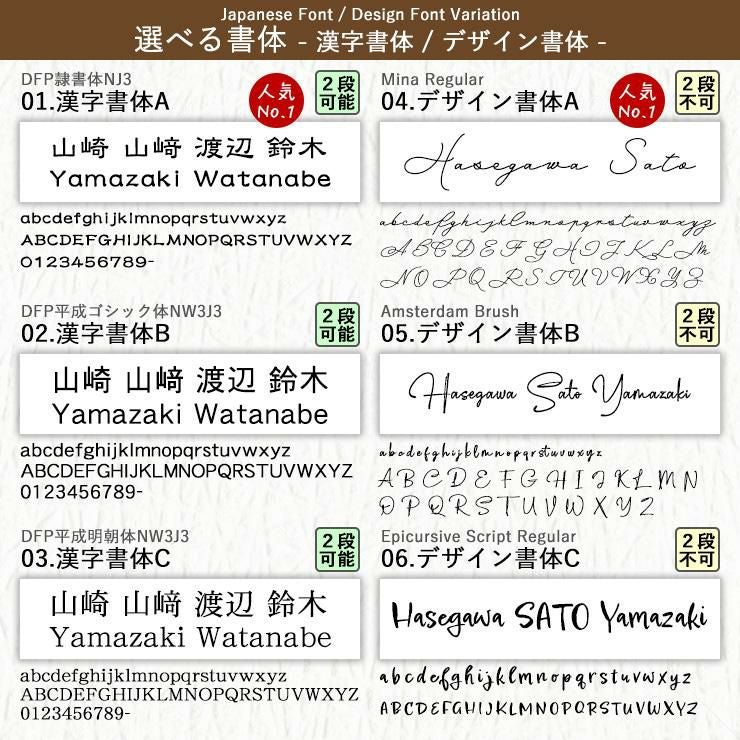 Japanese Font / Design Font Variation
選べる書体 - 漢字書体 / デザイン書体 -
DFP隷書体NJ3
01.漢字書体A
人気
No.1
2段
可能
山崎 山﨑 渡辺 鈴木
Yamazaki Watanabe
abcdefghijklmnopqrstuvwxyz
ABCDEFGHIJKLMNOPQRSTUVWXYZ
0123456789-
DFP平成ゴシック体NW3J3
02.漢字書体B
2段
可能
山崎 山﨑 渡辺 鈴木
Yamazaki Watanabe
abcdefghijklmnopqrstuvwxyz
ABCDEFGHIJKLMNOPQRSTUVWXYZ
0123456789-
DFP平成明朝体NW3J3
03.漢字書体C
2段
可能
山崎 山﨑 渡辺 鈴木
Yamazaki Watanabe
abcdefghijklmnopqrstuvwxyz
ABCDEFGHIJKLMNOPQRSTUVWXYZ
0123456789-
Mina Regular
04.デザイン書体A
人気
No.1
2段
不可
Hasegawa Sato
abcdefghijklmnopqrstuvwxyz
ABCDEFGHIJKLM
NOPQRSTUVWXYZ
Amsterdam Brush
05.デザイン書体B
2段
不可
Hasegawa Sato Yamazaki
abcdefghijklmnopqrstuvwxyz
ABCDEFGHIJKLMN
OPQRSTUVWXYZ
Epicursive Script Regular
06.デザイン書体C
2段
不可
Hasegawa SATO Yamazaki
abcdefghijklmnopqrstuvwxyz
ABCDEFGHIJKLMNOPQRSTUVWXYZ